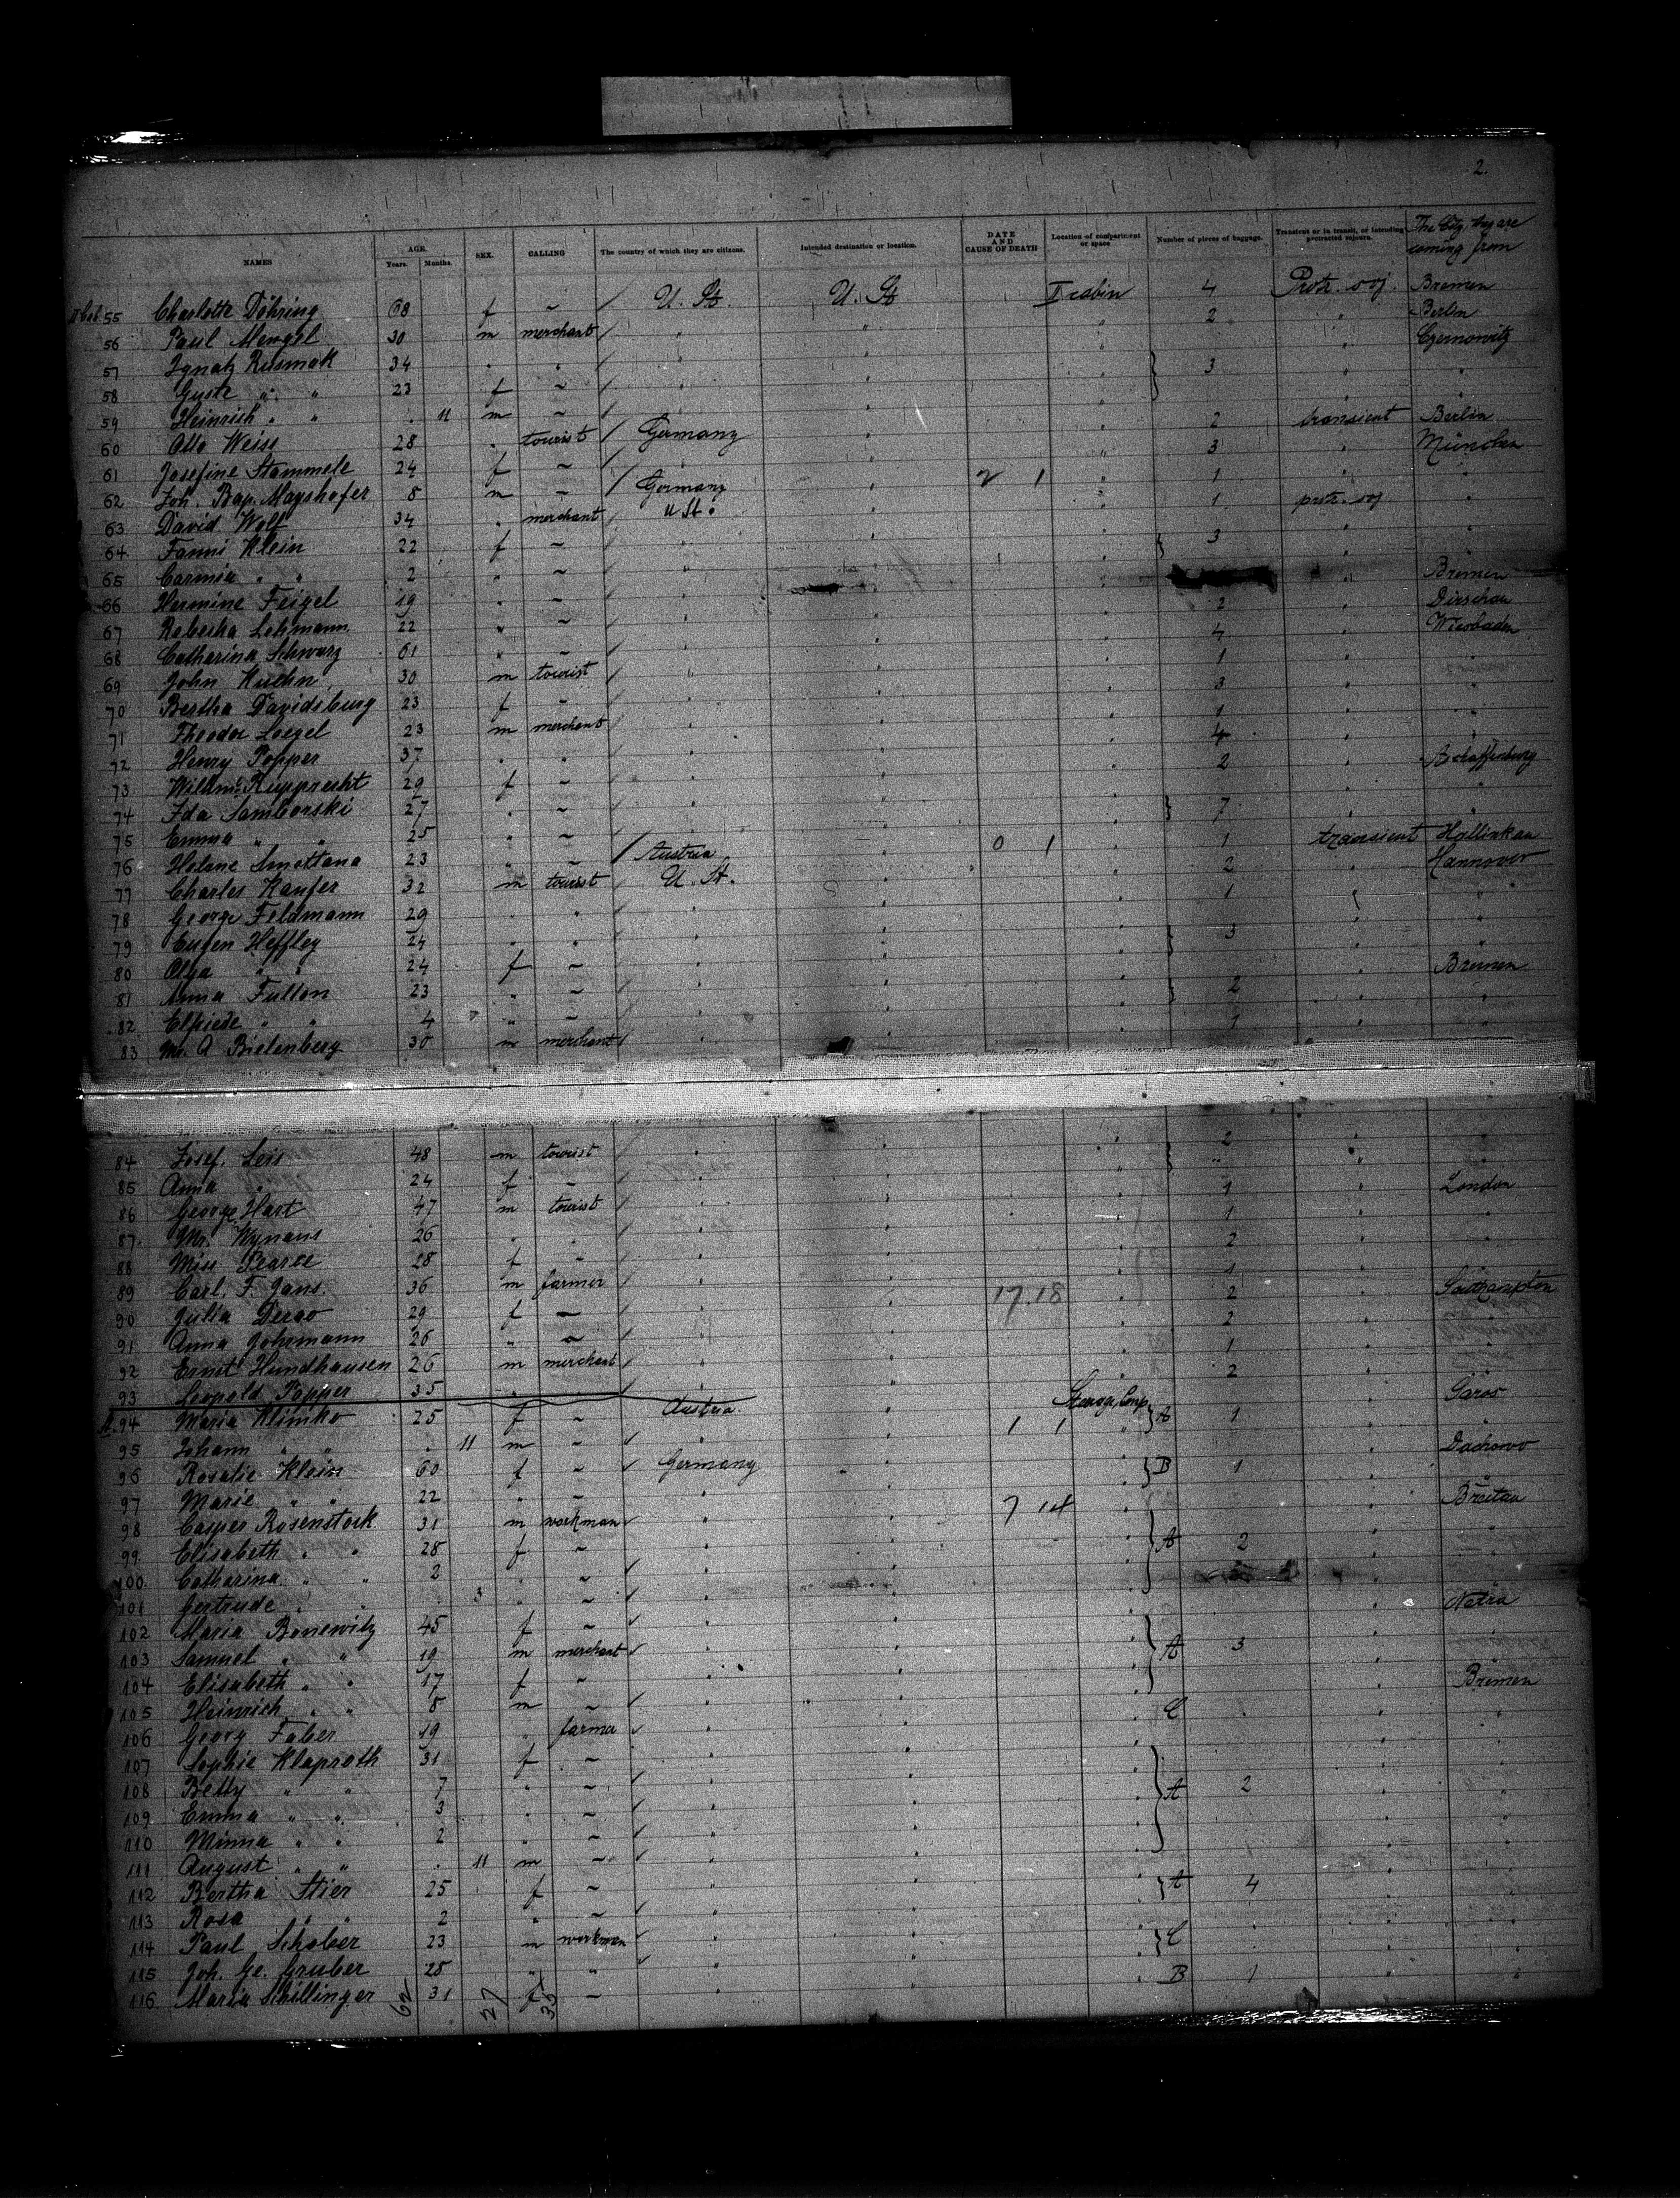 2.
NAMES AGE. Years. Months. SEX. CALLING The country of which they are citizens. Intended destination or location. DATE AND CAUSE OF DEATH Location of compartment or space Number of pieces of baggage. Transient or in transit, or intending protracted sojourn. The City they are coming from
II Cab. 55 Charlotte Döhring 68 f ~ / U. St. U. St II cabin 4 Protr. soj. Bremen
56 Paul Mengel 30 m merchant / " " " 2 " Berlin
57 Ignatz Rusmak 34 " " / " " " 3 " Czernowitz
58 Guste " " 23 f ~ / " " " " "
59 Heinrich " " 11 m ~ / " " " " "
60 Otto Weiss 28 " tourist / Germany " " 2 transient Berlin
61 Josefine Stammele 24 f ~ / " " " 3 " München
62 Joh. Bap. Mayshofer 8 m ~ / Germany " 2 1 " 1 " "
63 David Wolf 34 " merchant / U St. " " 1 protr. soj "
64 Fanni Klein 22 f ~ / " " " 3 " "
65 Carmia " " 2 " ~ / " " " " "
66 Hermine Feigel 19 " ~ / " " " " Bremen
67 Rebecka Lehmann 22 " ~ / " " " 2 " Dirschau
68 Catharina Schwarz 61 " ~ / " " " 4 " Wiesbaden
69 John Kuehn 30 m tourist / " " " 1 " "
70 Bertha Davidsburg 23 f ~ / " " " 3 " "
71 Theodor Loegel 23 m merchant / " " " 1 " "
72 Henry Popper 37 " " / " " " 4 " "
73 Wilhme Rupprecht 29 f ~ / " " " 2 " Aschaffenburg
74 Ida Samborski 27 " ~ / " " " 7 " "
75 Emma " " 25 " ~ / " " " " "
76 Helene Smettana 23 " ~ / Austria " 0 1 " 1 transient Hollinkau
77 Charles Kaufer 32 m tourist / U. St. " " 2 " Hannover
78 George Feldmann 29 " " / " " " 1 " "
79 Eugen Heffley 24 " " / " " " 3 " "
80 Olga " " 24 f ~ / " " " " "
81 Anna Fulton 23 " ~ / " " " 2 " Bremen
82 Elfriede " " 4 " ~ / " " " " "
83 Mr. A Bielenberg 30 m merchant / " " " 1 " "
84 Josef Leis 48 m tourist / " " " 2 " "
85 Anna " 24 f ~ / " " " " " "
86 George Hart 47 m tourist / " " " 1 " London
87 Mr. Wynans 26 " " / " " " 1 " "
88 Miss Pearce 28 f ~ / " " " 2 " "
89 Carl. F. Jans. 36 m farmer / " " " 1 " "
90 Julia Derao 29 f ~ / " " 17.18 " 2 " Southampton
91 Anna Johrmann 26 " ~ / " " " 2 " "
92 Ernst Hundhausen 26 m merchant / " " " 1 " "
93 Leopold Popper 35 " " / " " " 2 " "
St. 94 Maria Klimko 25 f ~ Austria " 1 1 Steerage Comp A 1 " Garos
95 Johann " " 11 m ~ / " " " " "
96 Rosalie Klein 60 f ~ / Germany " " B 1 " Dachowo
97 Marie " " 22 " ~ " " " " "
98 Casper Rosenstock 31 m workman / " " 7 14 " " Breitau
99 Elisabeth " " 28 f ~ " " " A 2 " "
100 Catharina " " 2 " ~ / " " " " "
101 Gertrude " " 3 " ~ / " " " " "
102 Maria Bonewitz 45 f ~ / " " " " Netra
103 Samuel " " 19 m merchant / " " " A 3 " "
104 Elisabeth " " 17 f ~ " " " " "
105 Heinrich " " 8 m ~ / " " " " "
106 Georg Faber 19 " farmer / " " " C " " Bremen
107 Sophie Klaproth 31 f ~ " " " " "
108 Betty " " 7 " ~ / " " " A 2 " "
109 Emma " " 3 " ~ / " " " " "
110 Minna " " 2 " ~ / " " " " "
111 August " " 11 m ~ / " " " " "
112 Bertha Stier 25 f ~ " " " A 4 " "
113 Rosa " " 2 " ~ / " " " " "
114 Paul Schober 23 m workman / " " " C " " "
115 Joh. Ge. Gruber 28 " " / " " " " "
116 Maria Schillinger 31 f ~ " " " B 1 " "
62 27 35